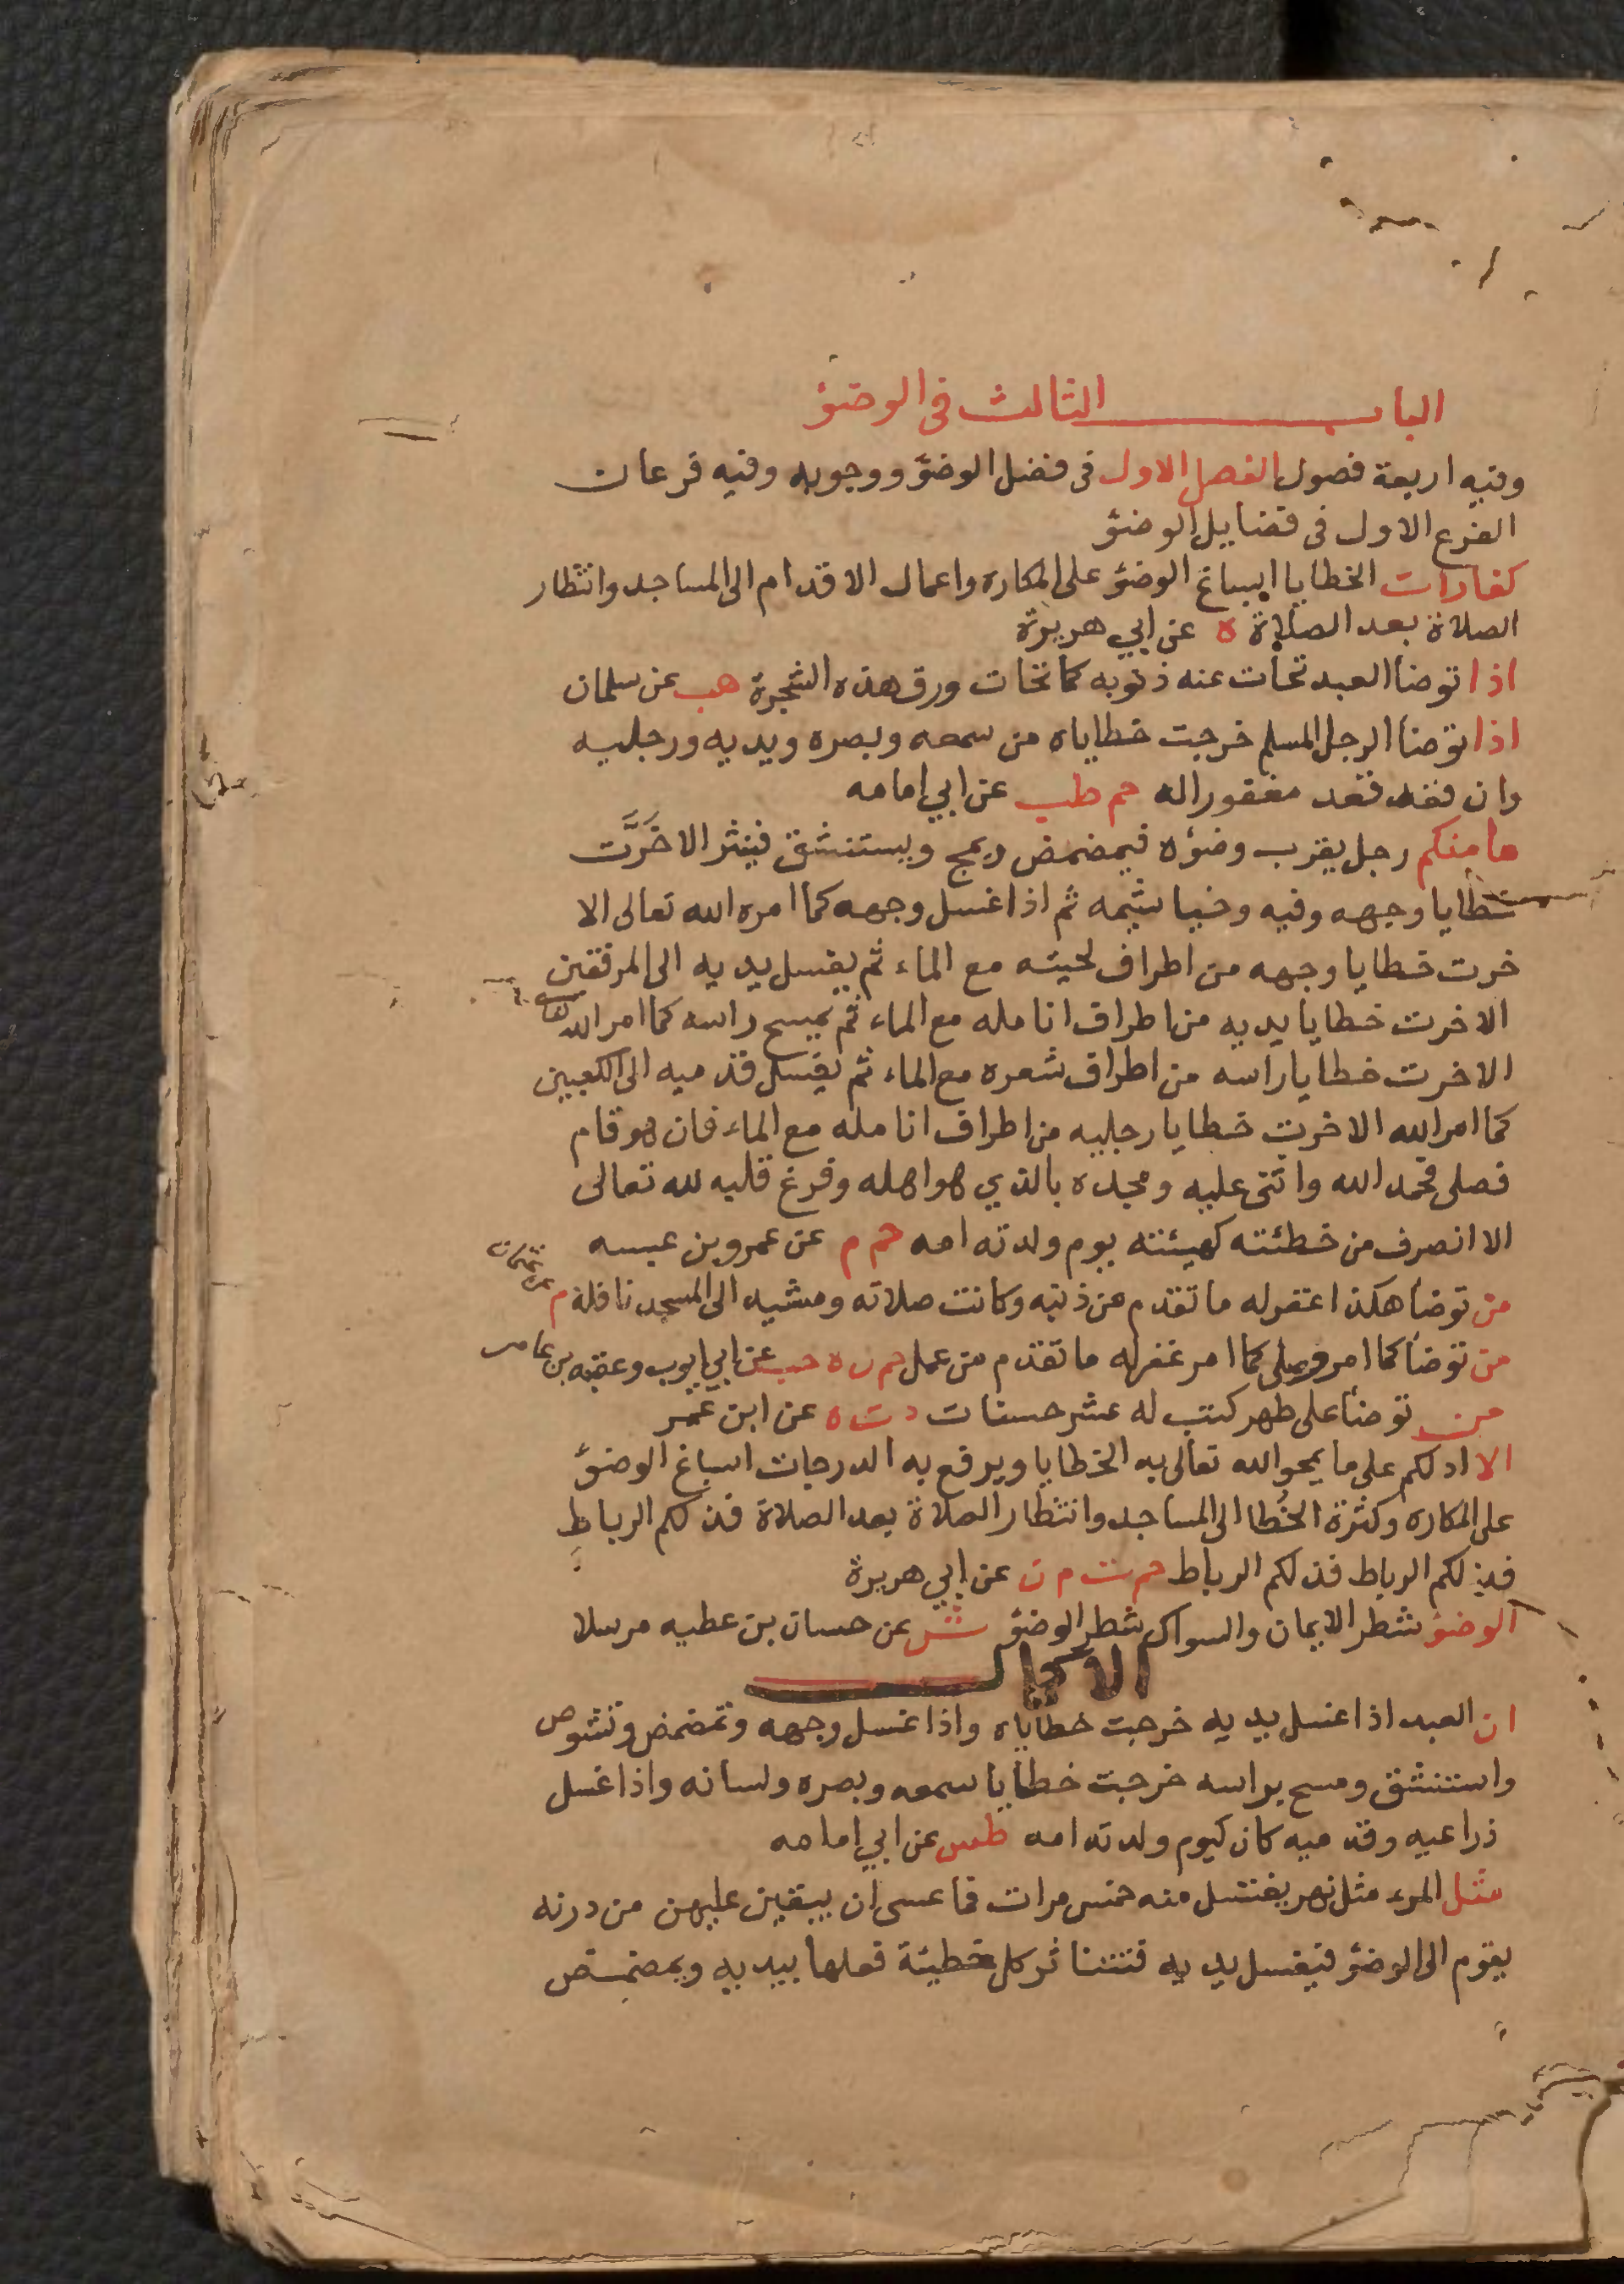 الباب الثالث فى الوضؤ
وفيه اربعة فصول الفصل الاول فى فضل الوضؤ ووجوبه وفيه فرعان
الفرع الاول فى فضايل الوضؤ
كفارات الخطايا اسباغ الوضؤ على المكاره واعمال الاقدام الى المساجد وانتظار
الصلاة بعد الصلاة ه عن ابي هريرة
اذا توضأ العبد تحات عنه ذنوبه كما تحات ورق هذه الشجرة هب عن سلمان
اذا توضأ الرجل المسلم خرجت خطاياه من سمعه وبصره ويديه ورجليه
وان قعد قعد مغفورا له حم طب عن ابي امامه
ما منكم رجل يقرب وضؤه فيمضمض ويمج ويستنشق فينثر الا خَرَّت
خطايا وجهه وفيه وخياشيمه ثم اذا غسل وجهه كما امره الله تعالى الا
خرت خطايا وجهه من اطراف لحيته مع الماء ثم يغسل يديه الى المرفقين
الا خرت خطايا يديه من اطراف انامله مع الماء ثم يمسح راسه كما امر الله تعالى
الا خرت خطايا راسه من اطراف شعره مع الماء ثم يغسل قدميه الى الكعبين
كما امر الله الا خرت خطايا رجليه من اطراف انامله مع الماء فان هو قام
فصلى فحمد الله واثنى عليه ومجده بالذي هو اهله وفرغ قلبه لله تعالى
الا انصرف من خطئته كهيئته يوم ولدته امه حم م عن عمرو بن عبسه
من توضأ هكذا غفر له ما تقدم من ذنبه وكانت صلاته ومشيه الى المسجد نافلة م عن عثمان
من توضأ كما امر وصلى كما امر غفر له ما تقدم من عمل حم ن ه حب عن ابي ايوب وعقبه بن عامر
من توضأ على طهر كتب له عشر حسنات د ت ه عن ابن عمر
الا ادلكم على ما يمحو الله تعالى به الخطايا ويرفع به الدرجات اسباغ الوضؤ
على المكاره وكثرة الخُطا الى المساجد وانتظار الصلاة بعد الصلاة فذلكم الرباط
فذلكم الرباط فذلكم الرباط حم ت م ن عن ابي هريرة
الوضؤ شطر الايمان والسواك شطر الوضؤ ش عن حسان بن عطيه مرسلا
الاكمال
ان العبد اذا غسل يديه خرجت خطاياه واذا غسل وجهه وتمضمض وتشوص
واستنشق ومسح براسه خرجت خطايا سمعه وبصره ولسانه واذا غسل
ذراعيه وقدميه كان كيوم ولدته امه طس عن ابي امامه
مثل المرء مثل نهر يغتسل منه خمس مرات فما عسى ان يبقين عليهن من درنه
يقوم الى الوضؤ فيغسل يديه فتتناثر كل خطيئة فعلها بيديه ويمضمض